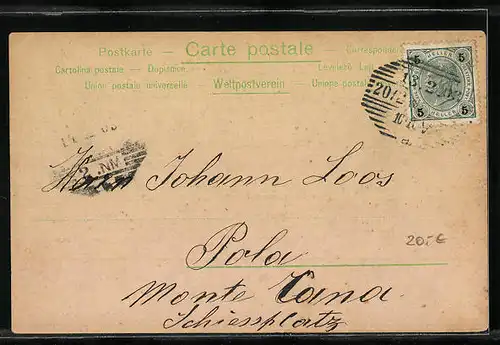 Postkarte — Carte postale — Correspondenz
Cartolina postale — Dopisnice — Levelező Lap
Union postale universelle — Weltpostverein — Unione postale
5 5
HELLER HELLER
5 5
13.2.02
Herrn Johann Loos
Pola
205€
Monte Cana
Schiessplatz